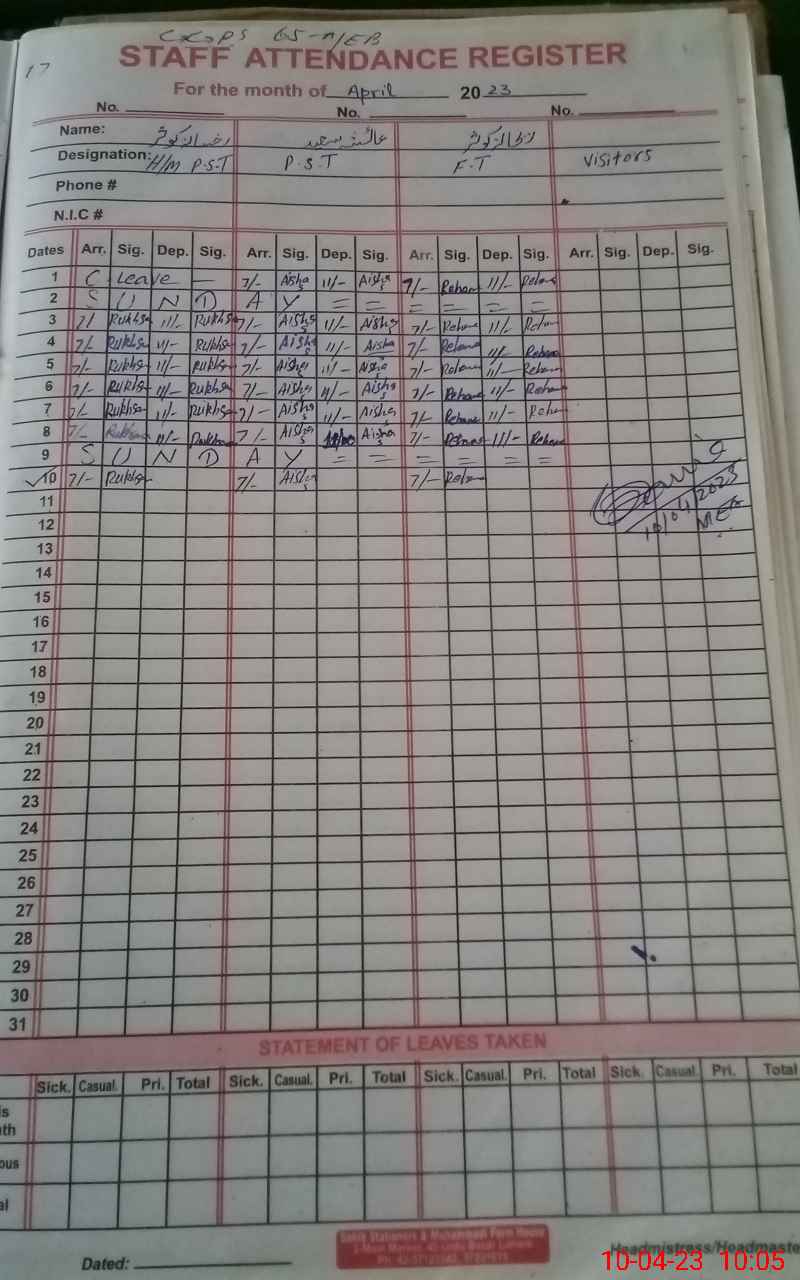 17
65-A/EB
STAFF ATTENDANCE REGISTER
For the month of April 2023
No. No. No.
Name: رخسانہ کوثر عائشہ سعید ریحانہ کوثر
Designation: H/M P.S.T P.S.T F.T Visitors
Phone #
N.I.C #
Dates Arr. Sig. Dep. Sig. Arr. Sig. Dep. Sig. Arr. Sig. Dep. Sig. Arr. Sig. Dep. Sig.
1 C Leave — 7/- Aisha 11/- Aisha 7/- Rehana 11/- Rehana
2 S U N D A Y = = = = = =
3 7/ Rukhsa 11/- Rukhsa 7/- Aisha 11/- Aisha 7/- Rehana 11/- Rehana
4 7/- Rukhsa 11/- Rukhsa 7/- Aisha 11/- Aisha 7/- Rehana 11/- Rehana
5 7/- Rukhsa 11/- Rukhsa 7/- Aisha 11/- Aisha 7/- Rehana 11/- Rehana
6 7/- Rukhsa 11/- Rukhsa 7/- Aisha 11/- Aisha 7/- Rehana 11/- Rehana
7 7/- Rukhsa 11/- Rukhsa 7/- Aisha 11/- Aisha 7/- Rehana 11/- Rehana
8 7/- Rukhsana 11/- Rukhsana 7/- Aisha Aisha 7/- Rehana 11/- Rehana
9 S U N D A Y = = = = = =
10 7/- Rukhsa 7/- Aisha 7/- Rehana
10/04/2023
11
12
13
14
15
16
17
18
19
20
21
22
23
24
25
26
27
28
29
30
31
STATEMENT OF LEAVES TAKEN
Sick. Casual. Pri. Total Sick. Casual. Pri. Total Sick. Casual. Pri. Total Sick. Casual. Pri. Total
Dated:
Headmistress/Headmaste
10-04-23 10:05